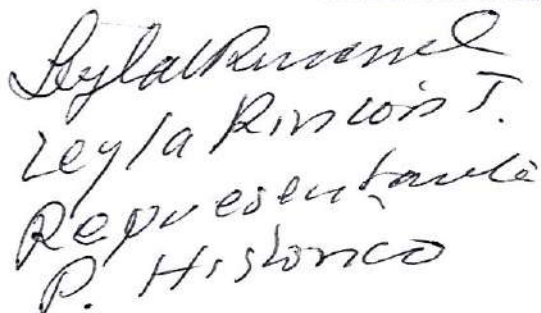 Leyla Rincón T.
Representante
P. Histórico